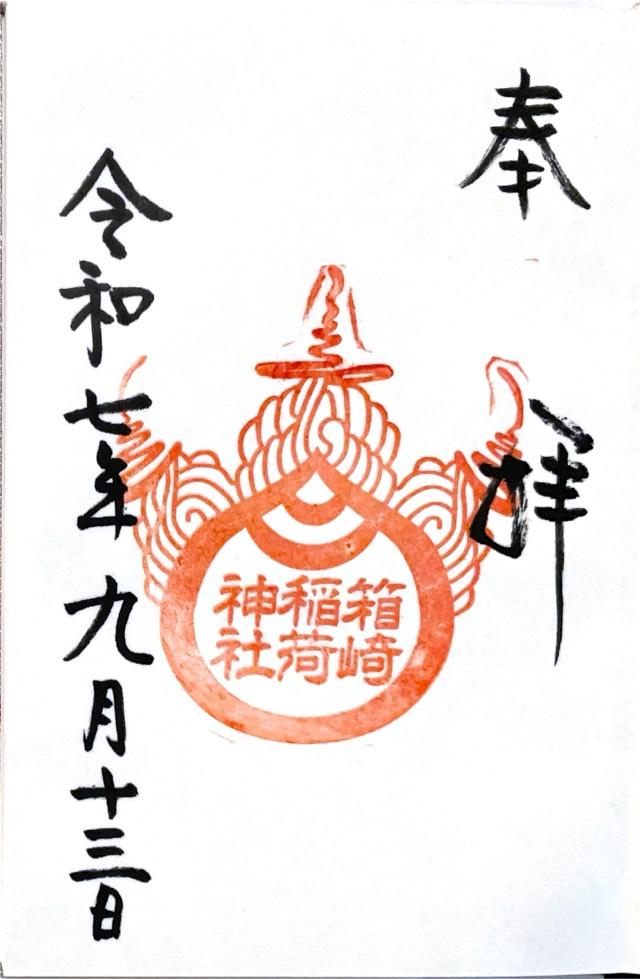 奉拝
箱崎
稲荷
神社
令和七年九月十三日